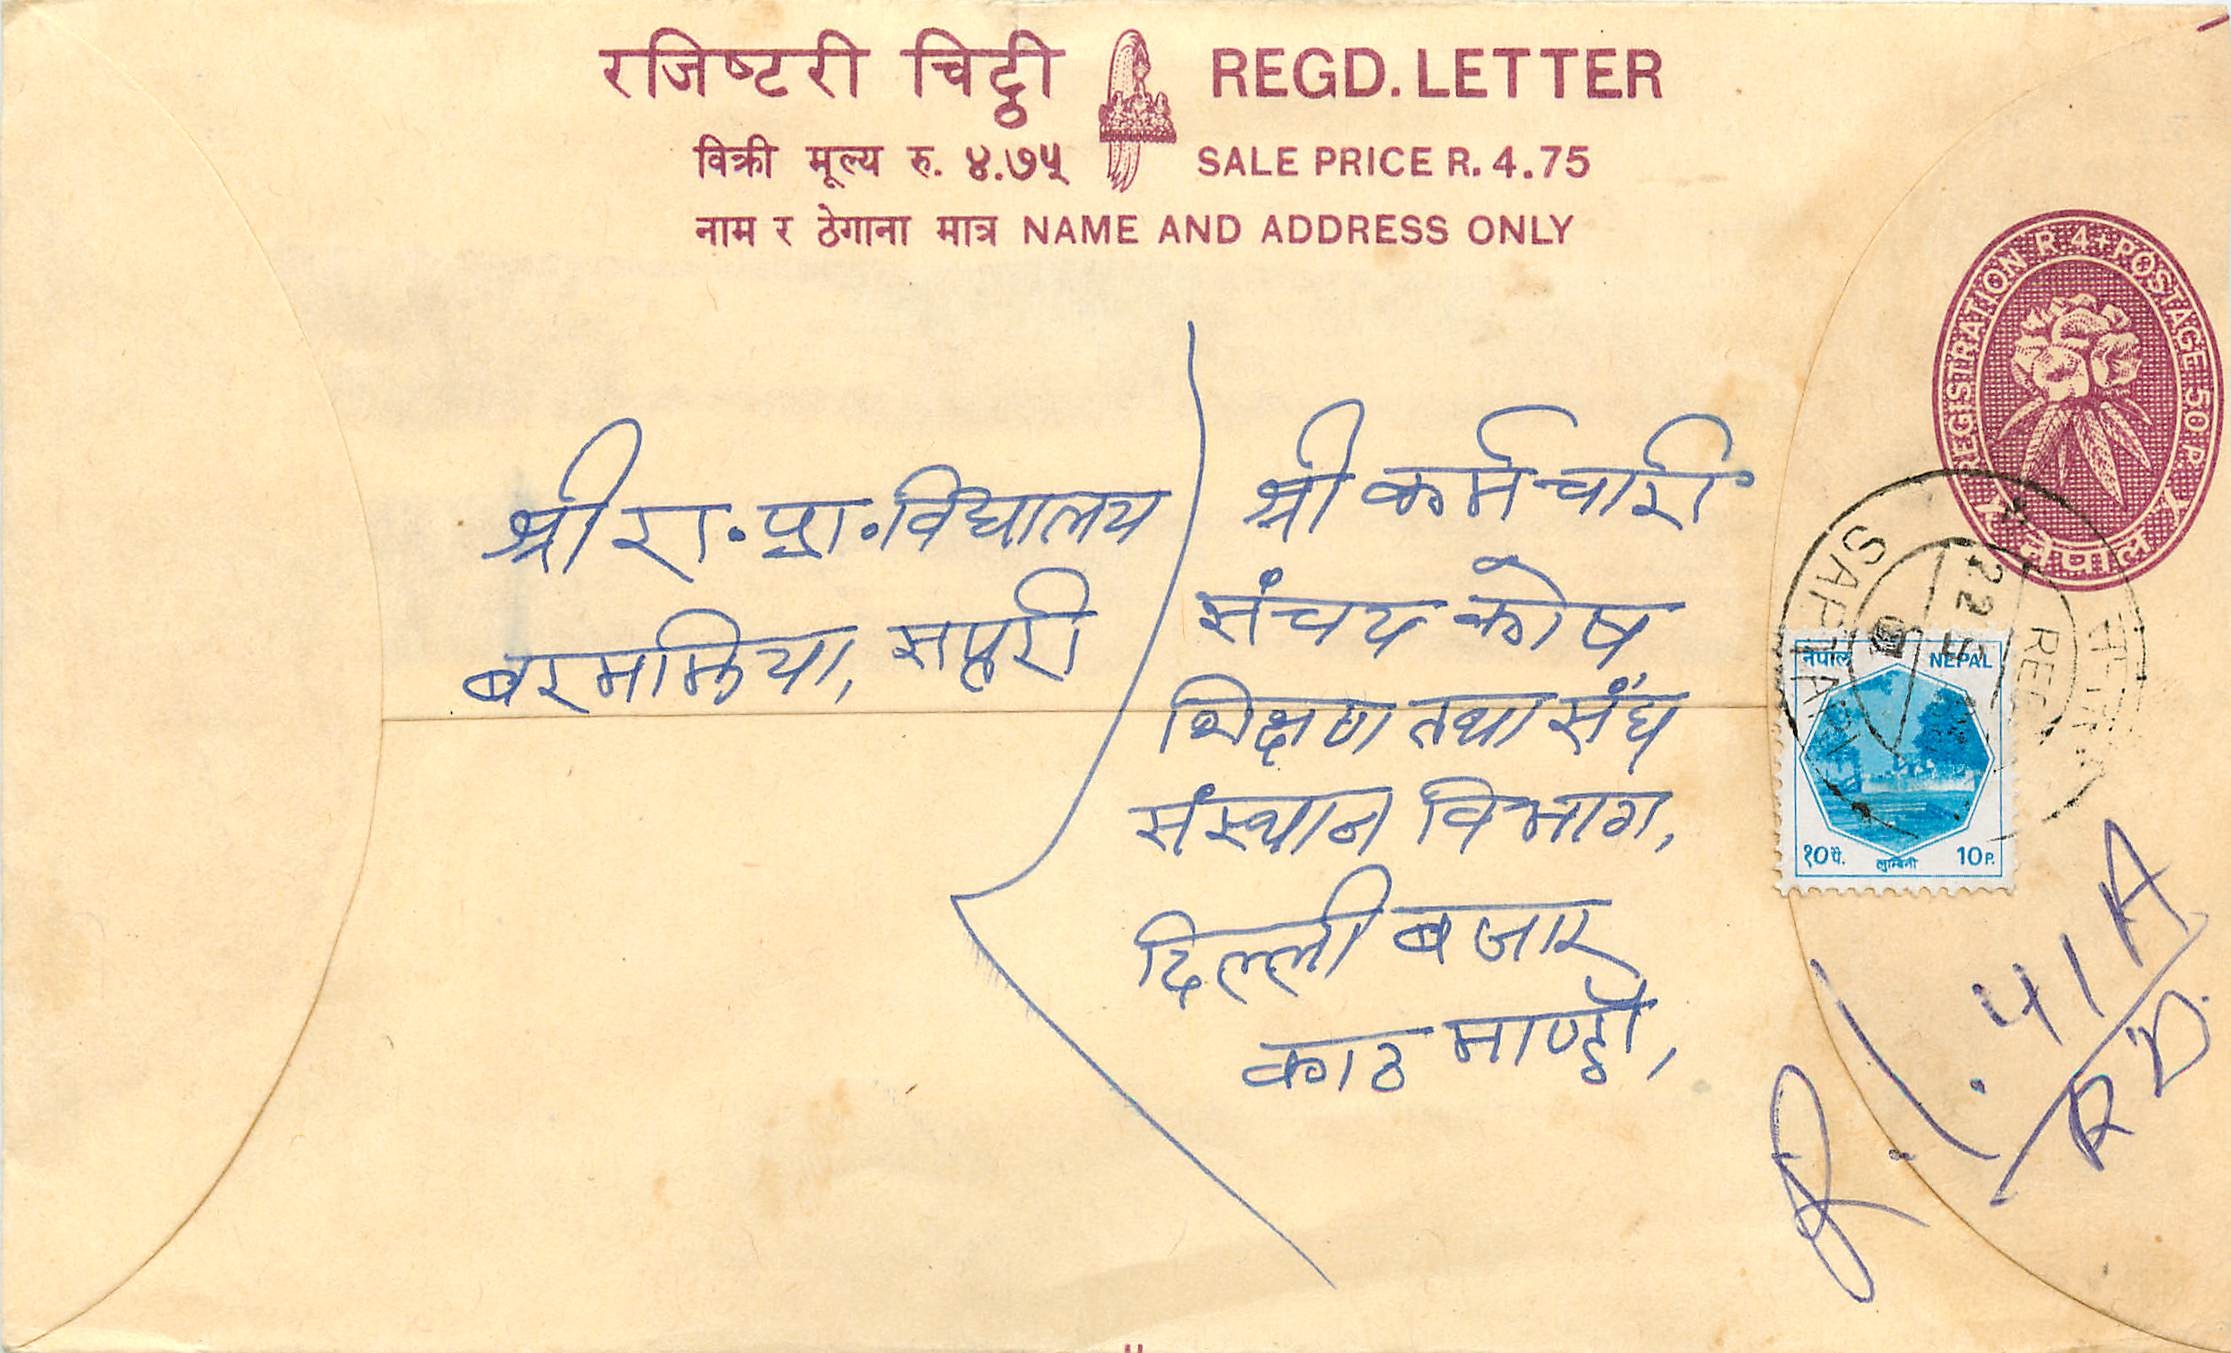 रजिष्टरी चिट्ठी REGD. LETTER
विक्री मूल्य रु. ४.७५ SALE PRICE R. 4.75
नाम र ठेगाना मात्र NAME AND ADDRESS ONLY
REGISTRATION R. 4 + POSTAGE 50 P.
नेपाल
श्री रा. प्रा. विद्यालय
बरमझिया, सप्तरी
श्री कर्मचारी
संचय कोष
शिक्षण तथा संघ
संस्थान विभाग,
दिल्ली बजार
काठमाण्डौ,
SAPTARI
REG
22
नेपाल NEPAL
१० पै. लुम्बिनी 10 P.
R.L. 41A
RD.